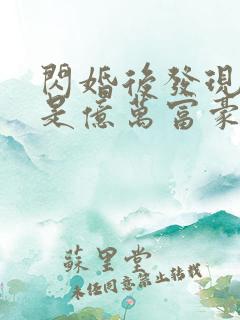 閃婚後發現
是億萬富豪
蘇里堂
未經同意禁止轉載